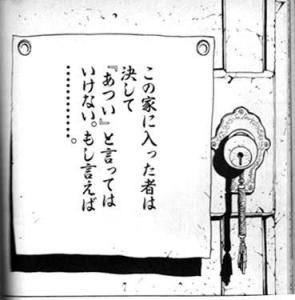 この家に入った者は
決して
『あつい』と言っては
いけない。もし言えば
……………。